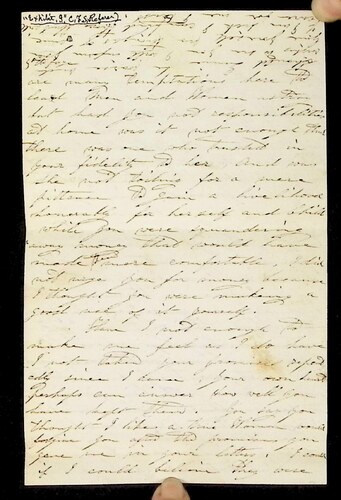 "Exhibit 9" C.F.S. Referee
are many temptations here to
lead Men and Women astray
but had you not responsibilities
at home was it not enough that
there was one who trusted in
your fidelity to her. And was
she not toiling for a mere
pittance to gain a livelihood
honorable for herself and child
while you were squandering
away money that would have
made more comfortable. I did
not urge you for money because
I thought you were making a
good use of it yourself.
Have I not enough to
make me feel as I do have
I not tested your promises
since I came. Your own heart
Perhaps can answer how well you
have kept them. You say you
thought I like a true Woman would
forgive you and the promises you
gave me in your letter. I would
if I could believe they were